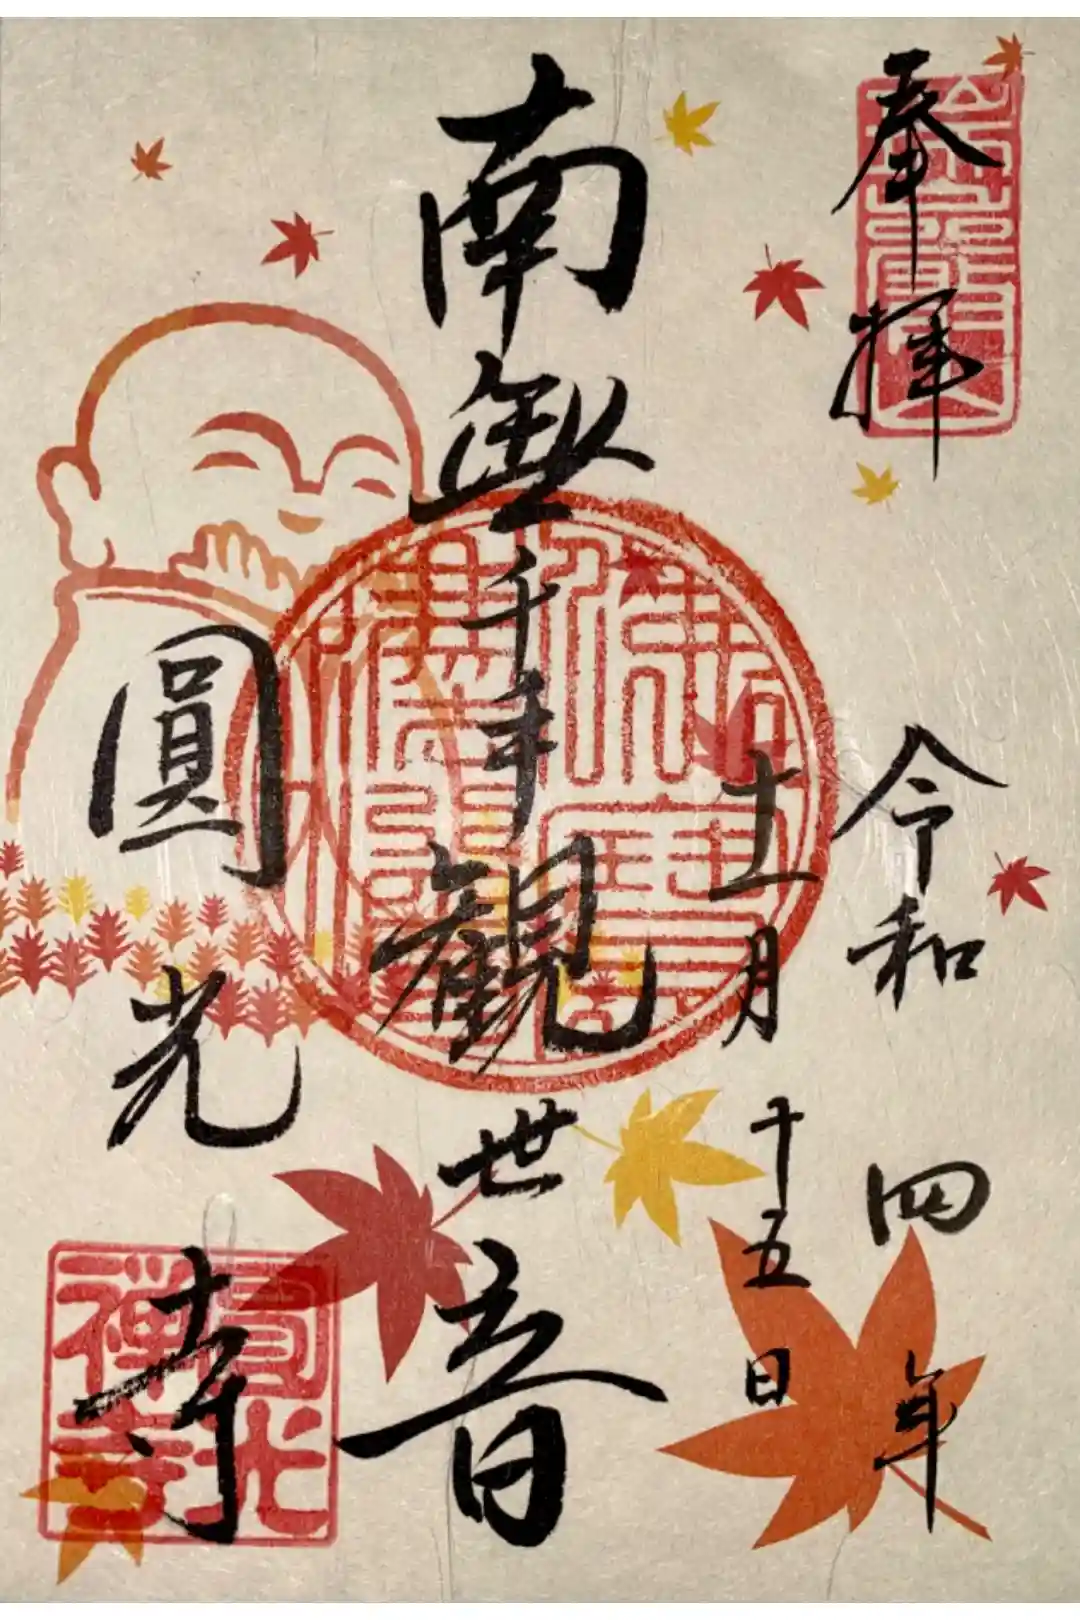 奉拝
令和四年
十一月十五日
南無千手観世音
圓光寺
圓光
禅寺